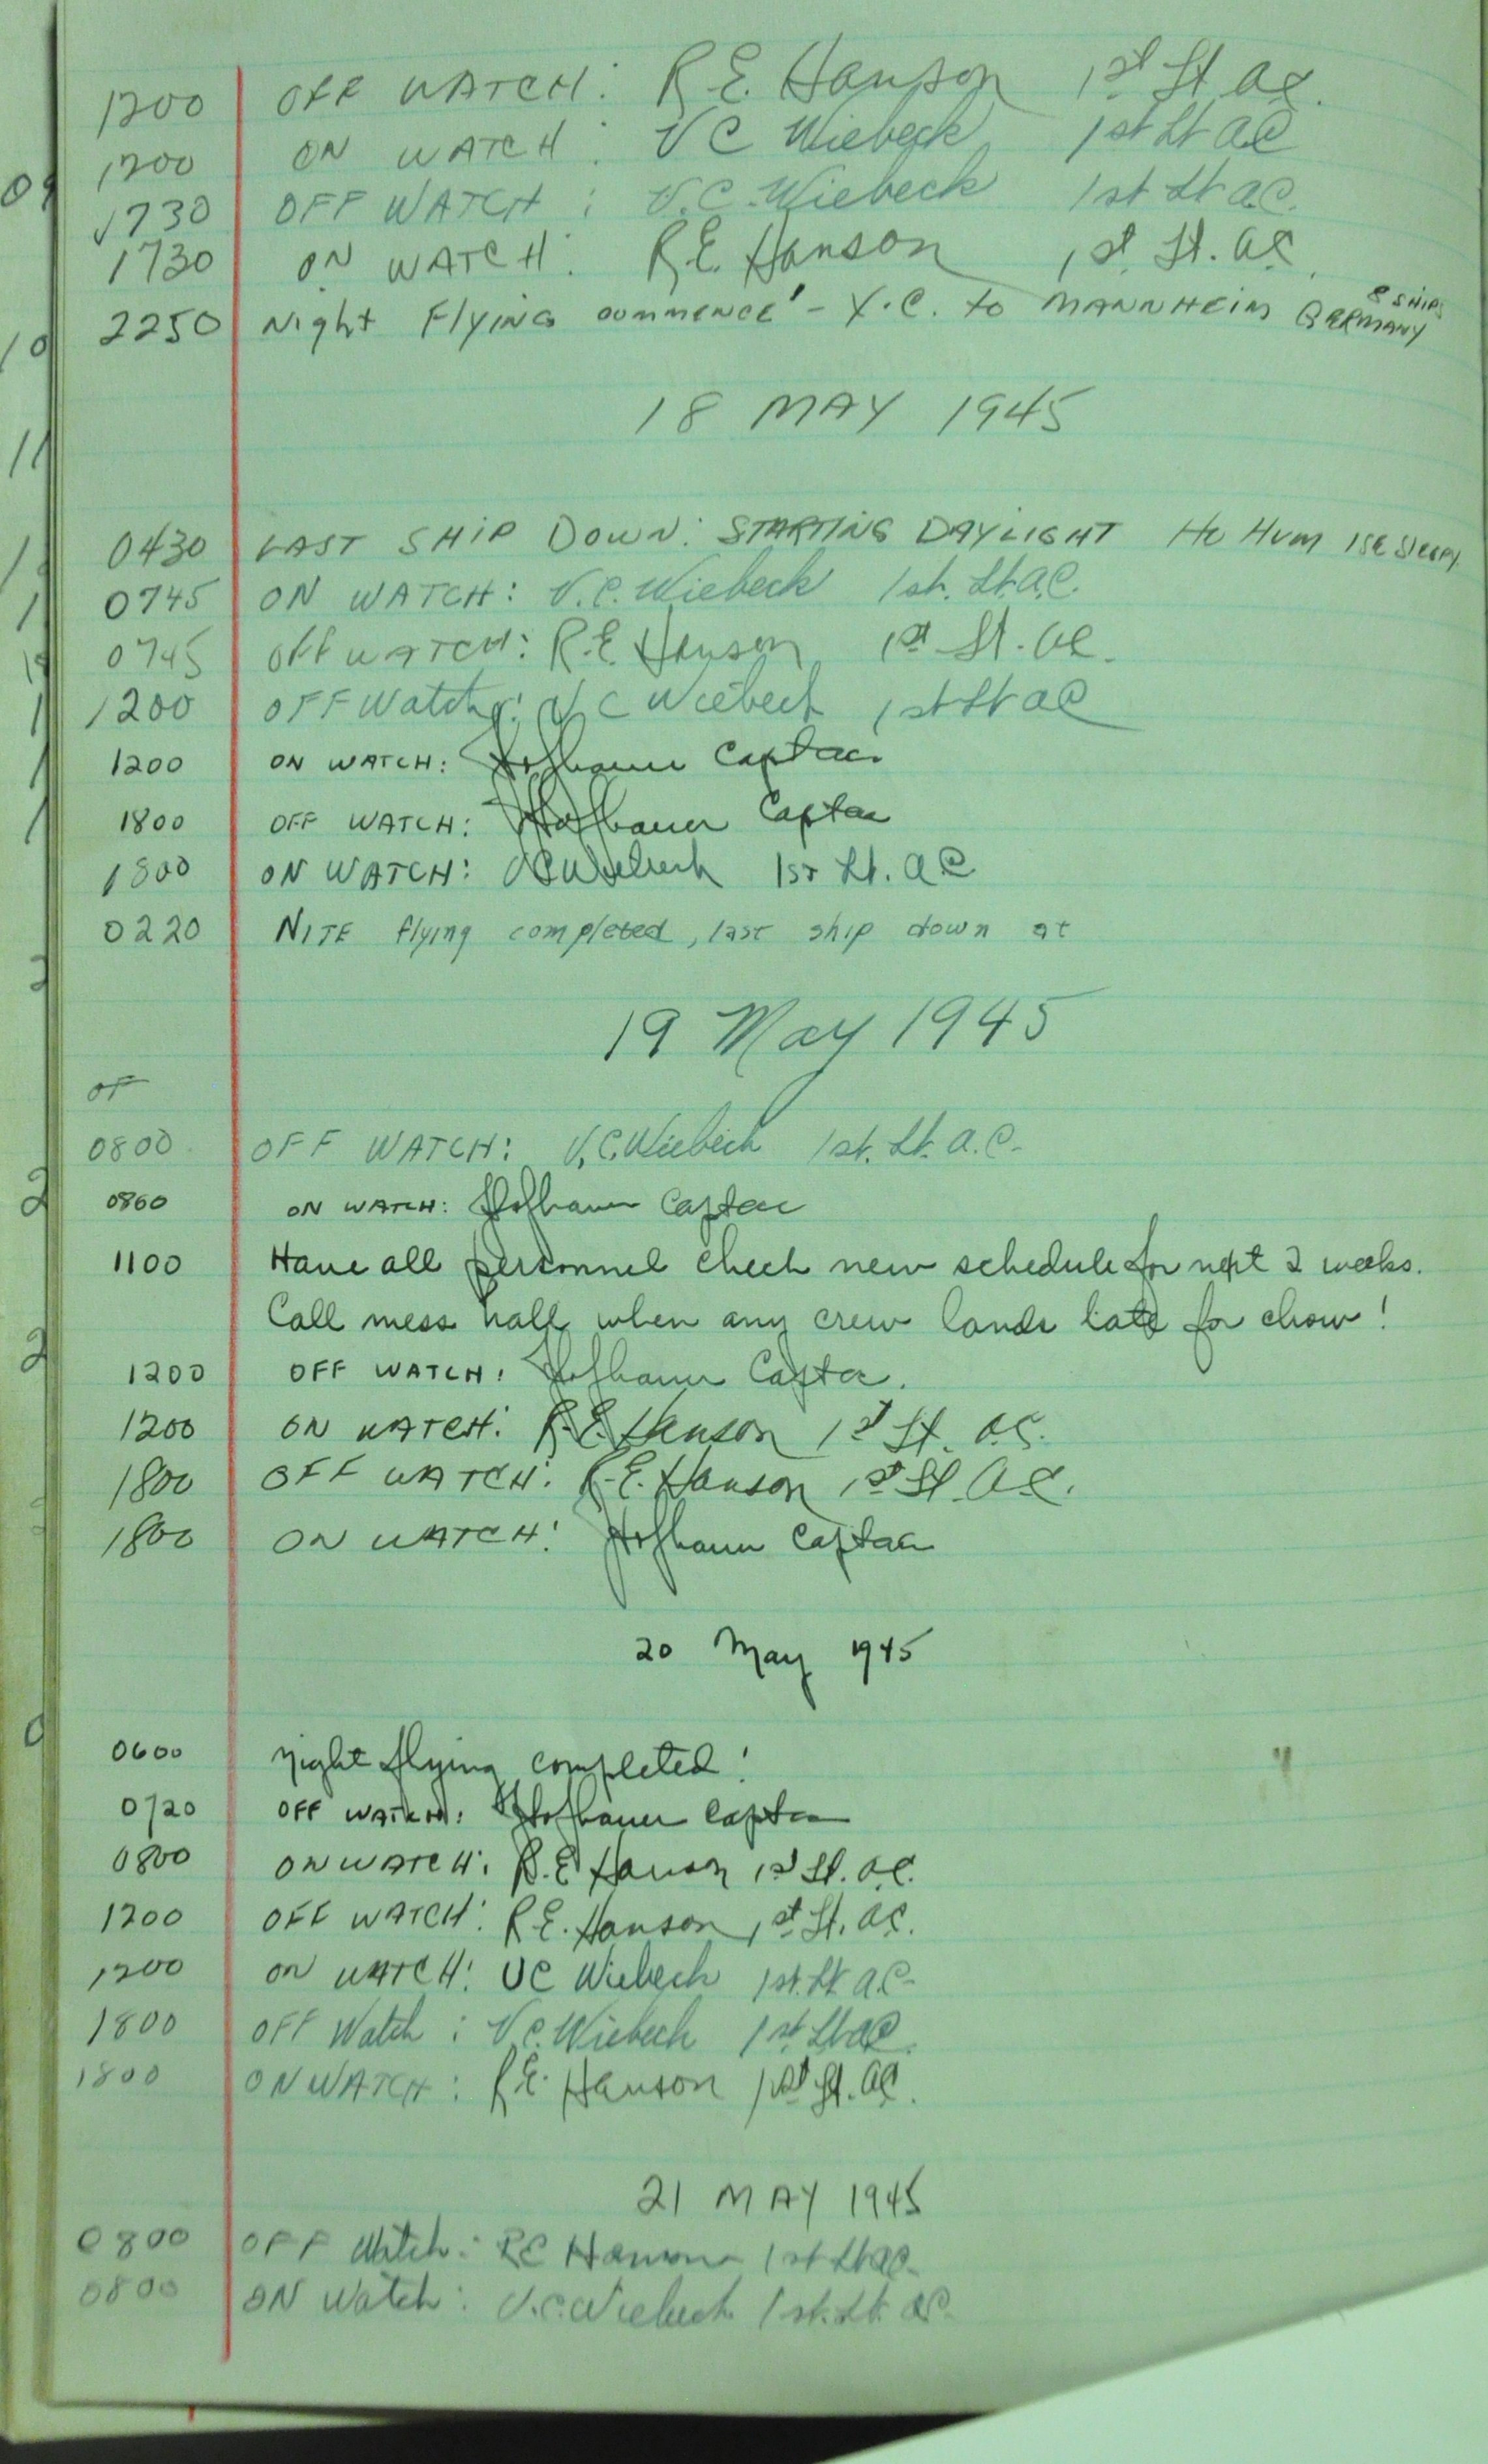 1200 OFF WATCH: R.E. Hanson 1st Lt. A.C.
1200 ON WATCH: V C Wiebeck 1st Lt A.C.
1730 OFF WATCH: V.C. Wiebeck 1st Lt A.C.
1730 ON WATCH: R.E. Hanson 1st Lt. A.C.
2250 Night Flying commence' - X.C. to MANNHEIM GERMANY 8 SHIPS
18 MAY 1945
0430 LAST SHIP DOWN: STARTING DAYLIGHT Ho Hum ISE Sleepy
0745 ON WATCH: V.C. Wiebeck 1st. Lt. A.C.
0745 OFF WATCH: R.E. Hanson 1st Lt. A.C.
1200 OFF Watch: V C Wiebeck 1st Lt A C
1200 ON WATCH: Hofbauer Captac
1800 OFF WATCH: Hofbauer Captac
1800 ON WATCH: V C Wiebeck 1ST Lt. A C
0220 NITE flying completed, last ship down at
19 May 1945
OF
0800 OFF WATCH: V.C. Wiebeck 1st. Lt. A.C.
0800 ON WATCH: Hofbauer Captac
1100 Have all personnel check new schedule for next 2 weeks.
Call mess hall when any crew lands late for chow!
1200 OFF WATCH: Hofbauer Captac.
1200 ON WATCH: R.E. Hanson 1st Lt. A.C.
1800 OFF WATCH: R.E. Hanson 1st Lt. A.C.
1800 ON WATCH: Hofbauer Captac
20 May 1945
0600 Night flying completed!
0720 OFF WATCH: Hofbauer Captac
0800 ON WATCH: R.E. Hanson 1st Lt. A.C.
1200 OFF WATCH: R.E. Hanson 1st Lt. A.C.
1200 ON WATCH: VC Wiebeck 1st. Lt A.C.
1800 OFF Watch: V.C. Wiebeck 1st Lt A C.
1800 ON WATCH: R.E. Hanson 1st Lt. A.C.
21 MAY 1945
0800 OFF Watch: RE Hanson 1st Lt A.C.
0800 ON Watch: V.C. Wiebeck 1st. Lt. A.C.